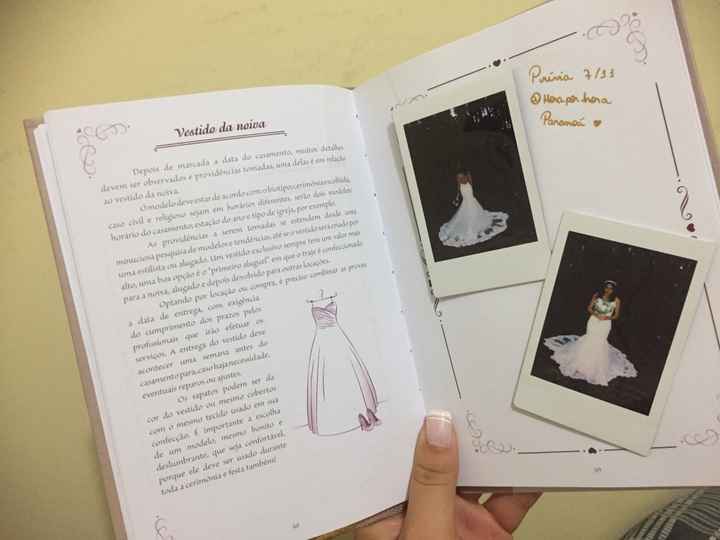 Vestido da noiva
Depois de marcada a data do casamento, muitos detalhes
devem ser observados e providências tomadas, uma delas é em relação
ao vestido da noiva.
O modelo deve estar de acordo com o biotipo, cerimônia escolhida,
caso civil e religioso sejam em horários diferentes, serão dois modelos
horário do casamento, estação do ano e tipo de igreja, por exemplo.
As providências a serem tomadas se estendem desde uma
minuciosa pesquisa de modelos e tendências, até se o vestido será criado por
uma estilista ou alugado. Um vestido exclusivo sempre tem um valor mais
alto, uma boa opção é o "primeiro aluguel" em que o traje é confeccionado
para a noiva, alugado e depois devolvido para outras locações.
Optando por locação ou compra, é preciso combinar as provas
a data de entrega, com exigência
do cumprimento dos prazos pelos
profissionais que irão efetuar os
serviços. A entrega do vestido deve
acontecer uma semana antes do
casamento para, caso haja necessidade,
eventuais reparos ou ajustes.
Os sapatos podem ser da
cor do vestido ou mesmo cobertos
com o mesmo tecido usado em sua
confecção. É importante a escolha
de um modelo, mesmo bonito e
deslumbrante, que seja confortável,
porque ele deve ser usado durante
toda a cerimônia e festa também!
Prévia 7/11
@Hora.por.hora
Paranoá